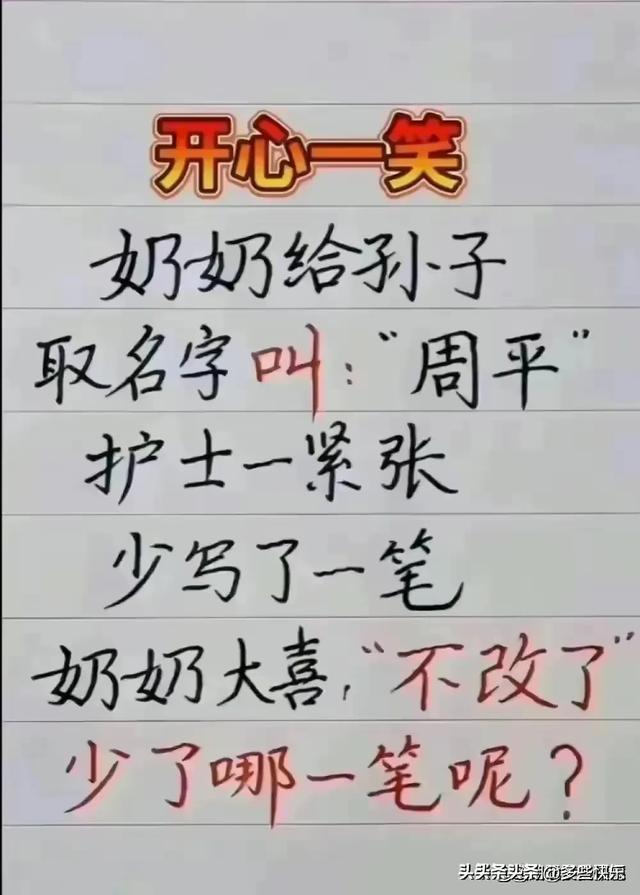 开心一笑
奶奶给孙子
取名字叫:“周平”
护士一紧张
少写了一笔
奶奶大喜,“不改了”
少了哪一笔呢?